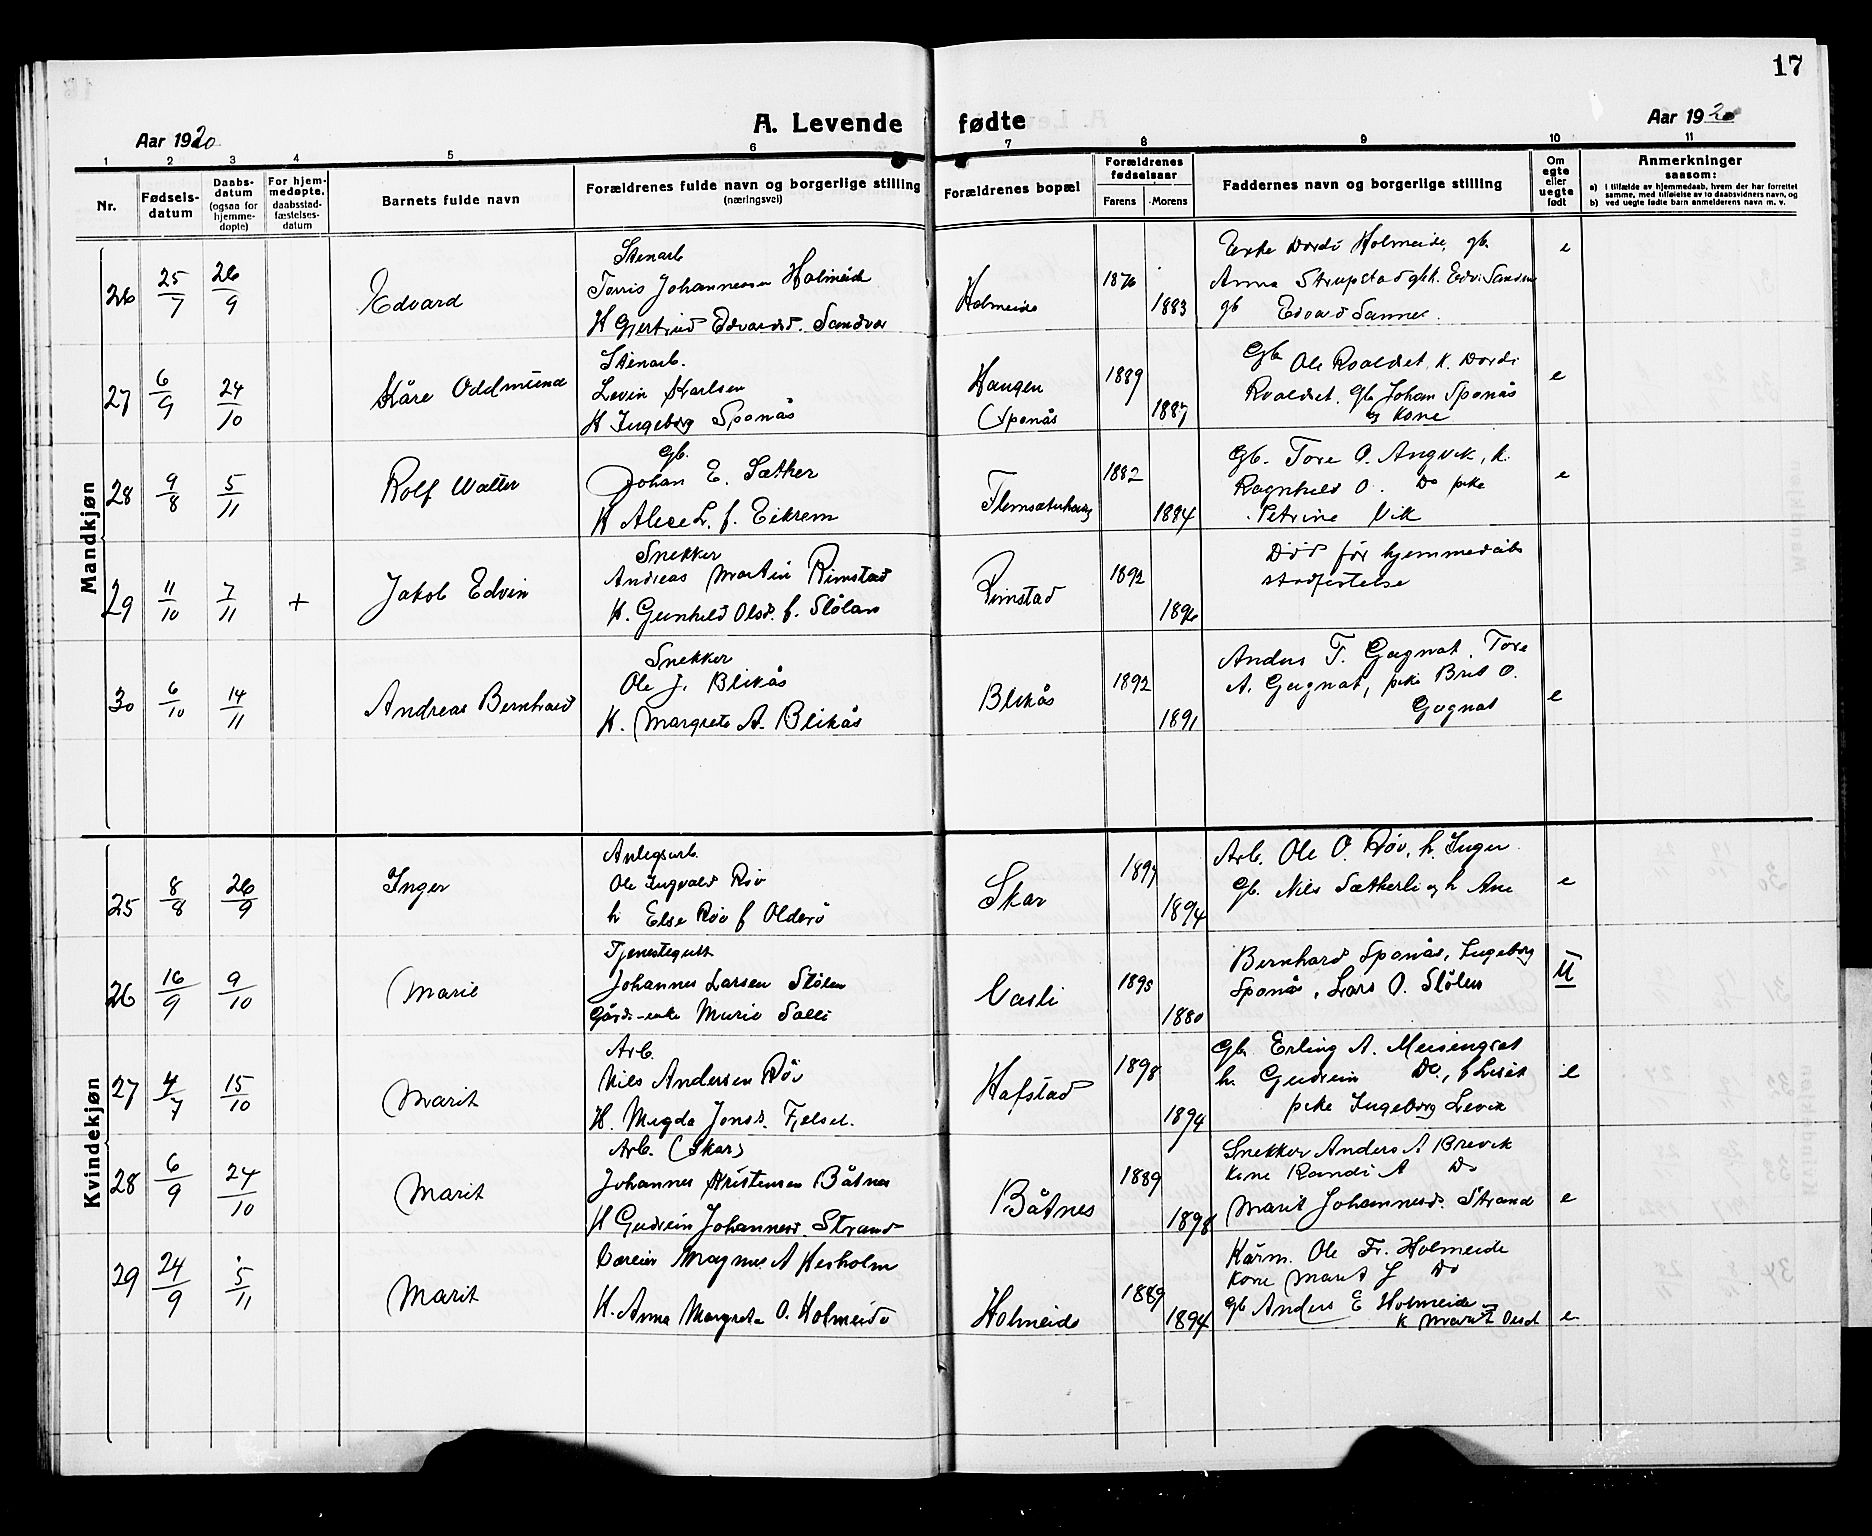 17
Aar 1920
A. Levende fødte
Aar 1920
1 2 3 4 5 6 7 8 9 10 11
Nr.
Fødsels-
datum
Daabs-
datum
(ogsaa for
hjemme-
døpte)
For hjem-
medøpte.
daabsstad-
fæstelses-
datum
Barnets fulde navn
Forældrenes fulde navn og borgerlige stilling
(næringsvei)
Forældrenes bopæl
Forældrenes
fødselsaar
Farens
Morens
Faddernes navn og borgerlige stilling
Om
egte
eller
uegte
født
Anmerkninger
saasom:
a) i tilfælde av hjemmedaab, hvem der har forrettet
samme, med tilføielse av to daabsvidners navn, og
b) ved uegte fødte barn anmelderens navn m. v.
Mandkjøn
26 25/7 26/9 Edvard
Stenarb
Torris Johannessen Holmeide
K Gjertrud Edvardsd. Sandvær
Holmeide 1876 1883
Enke Dordi Holmeide, gb.
Anna Strupstad gbk. Edv. Sandnes
gb Edvard Sannes.
e
27 6/9 24/10 Kåre Oddmund
Stenarb.
Levin Karlsen
K Ingeborg Sponås
Haugen
Sponås
1889 1887
Gb Ole Roaldset, K. Dordi
Roaldset. Gb Johan Sponås
og Kone
e
28 9/8 5/11 Rolf Walter
Gb.
Johan E. Sæther
K Alice L. f. Eikrem
1882 1884
Gb. Tore O. Angvik, K.
Ragnhild O. Do pike
Petrine Vik
e
29 11/10 7/11 + Jakob Edvin
Snekker
Andreas Martin Rimstad
K. Gunhild Olsd. f. Stølan
Rimstad 1892 1896
Død før hjemmedåbs
stadfestelse
30 6/10 14/11 Andreas Bernhard
Snekker
Ole J. Blikås
K. Margrete A. Blikås
Blikås 1892 1891
Anders T. Gagnat, Tore
A. Gagnat, pike Brit O.
Gagnat
e
Kvindekjøn
25 8/8 26/9 Inger
Anlegsarb.
Ole Ingvald Røv
h Else Røv f Olderø
Skar 1897 1894
Arb. Ole O. Røv, h. Inger
Gb. Nils Sætherli og h Ane
e
26 16/9 9/10 Marie
Tjenestegutt
Johannes Larsen Stølen
Gårds-enke Marie Salli
Vasli 1895 1880
Bernhard Sponås, Ingeborg
Sponås, Lars O. Stølen
U
27 4/7 15/10 Marit
Arb.
Nils Andersen Røv
K. Magda Jonsd. Fjelset.
Hafstad 1898 1894
Gb Erling A. Meisingset
h. Gudrun Do,
pike Ingeborg Levik
e
28 6/9 24/10 Marit
Arb. (Skar)
Johannes Kristensen Båtnes
K Gudrun Johannesd. Strand
Båtnes 1889 1898
Snekker Anders A Brevik
Kone Randi A Do
Marit Johannesd. Strand
e
29 24/9 5/11 Marit
Magnus A Hesholm
K. Anna Margreta O. Holmeide
Holmeide 1889 1894
Ole Fr. Holmeide
Kone Marit J Do
gb Anders E Holmeide
K Marit Olsd
e